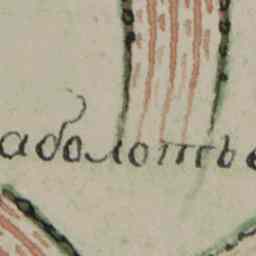 аболотье